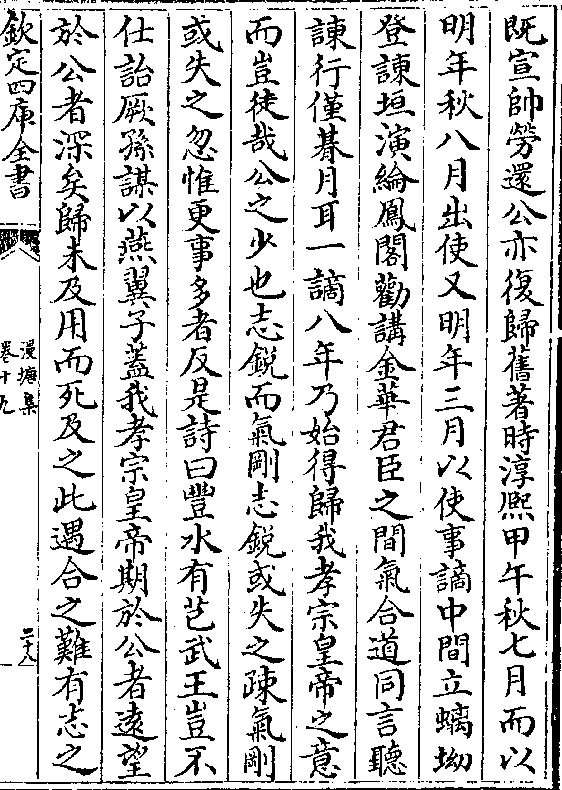 既宣帥勞還公亦復歸舊著時淳熈甲午秋七月而以
明年秋八月出使又明年三月以使事謫中間立螭坳
登諫垣演綸鳳閣勸講金華君臣之間氣合道同言聽
諫行僅朞月耳一謫八年乃始得歸我孝宗皇帝之意
而豈徒哉公之少也志銳而氣剛志銳或失之踈氣剛
或失之忽惟更事多者反是詩曰豐水有芑武王豈不
仕詒厥孫謀以燕翼子蓋我孝宗皇帝期於公者遠望
於公者深矣歸未及用而死及之此遇合之難有志之
欽定四庫全書
漫塘集
卷十九
二十八